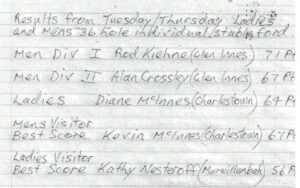 Results from Tuesday/Thursday Ladies
and Mens 36 hole individual stableford
Men Div I Rod Kiehne (Glen Innes) 71 Pt
Men Div II Alan Crossley (Glen Innes) 67 Pt
Ladies Diane McInnes (Charlestown) 69 Pt
Mens Visitor
Best Score Kevin McInnes (Charlestown) 67 P
Ladies Visitor
Best Score Kathy Nesteroff (Murwillumbah) 56 P